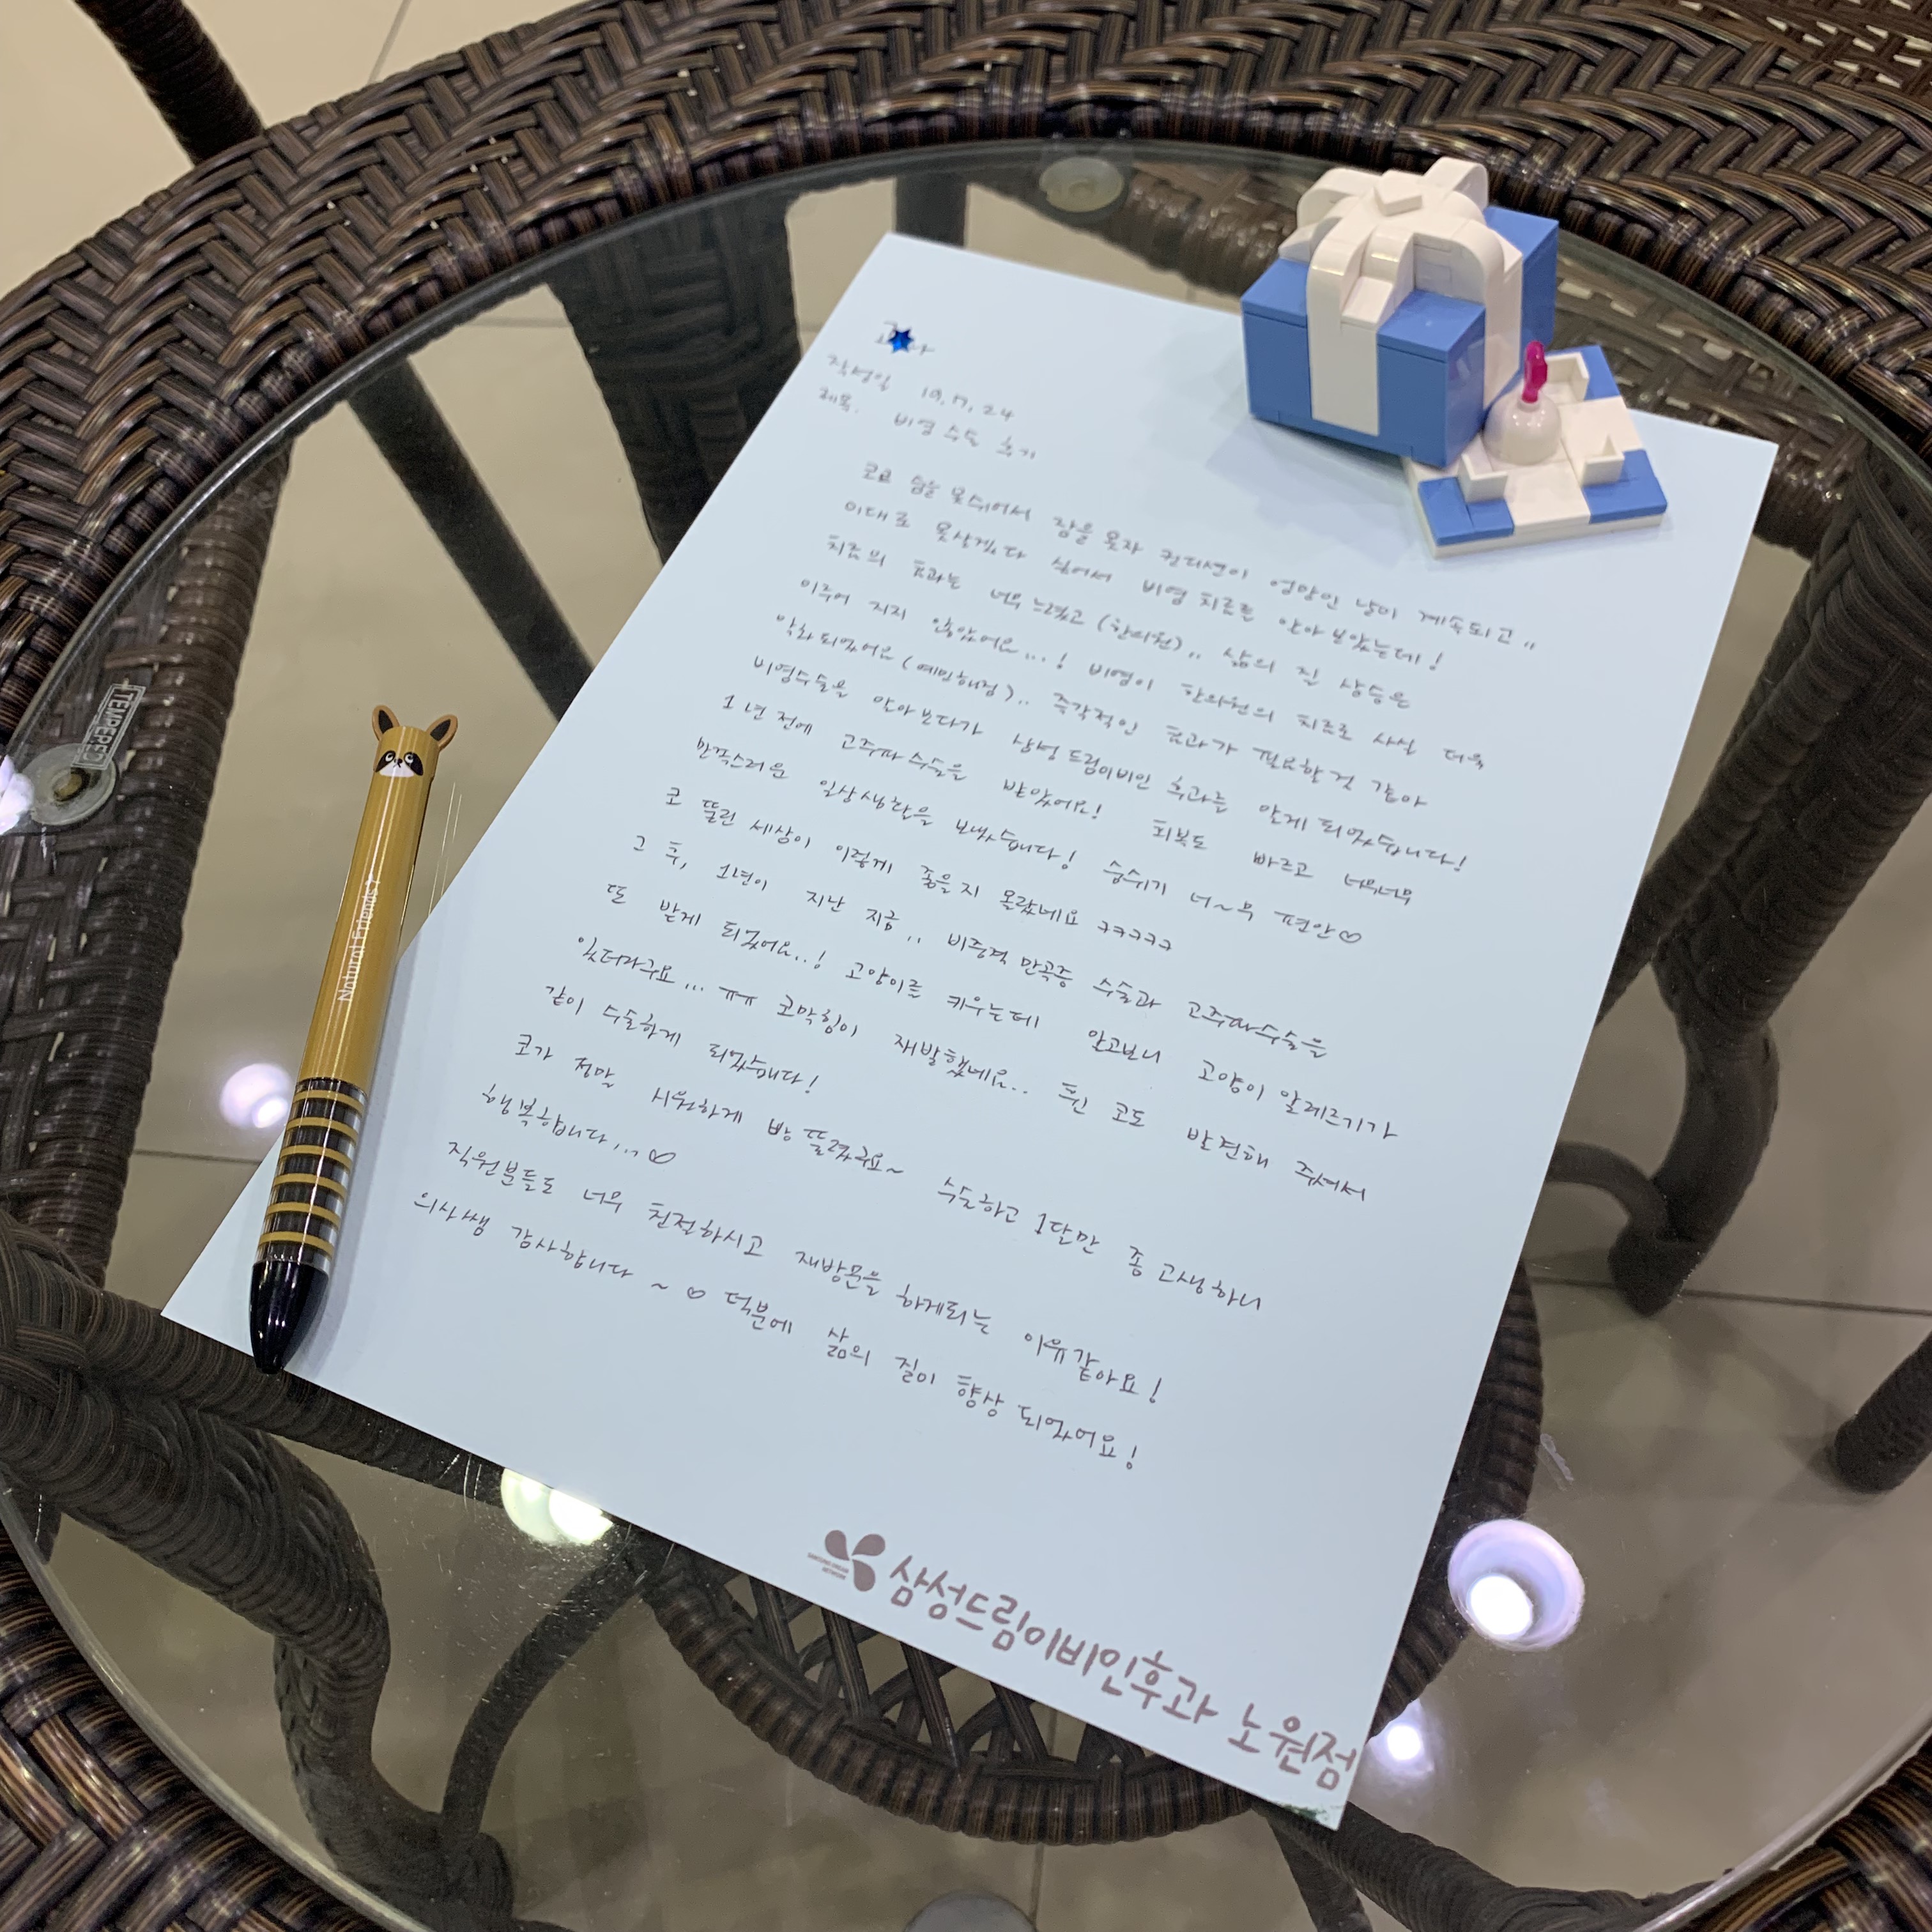 작성일 19.11.24
제목. 비염 수술 후기
코로 숨을 못쉬어서 잠을 못자 컨디션이 엉망인 날이 계속되고..
이대로 못살겠다 싶어서 비염 치료를 알아보았는데!
치료의 효과는 너무 느렸고 (한의원).. 삶의 질 상승은
이루어 지지 않았어요...! 비염이 한의원의 치료로 사실 더욱
악화되었어요 (예민해짐).. 즉각적인 효과가 필요할것 같아
비염수술을 알아보다가 삼성드림이비인후과를 알게 되었습니다!
1년 전에 고주파 수술을 받았어요! 회복도 빠르고 너무너무
만족스러운 일상생활을 보냈습니다! 숨쉬기 너~무 편안♡
코 뚫린 세상이 이렇게 좋을지 몰랐네요 ㅋㅋㅋㅋㅋ
그 후, 1년이 지난 지금.. 비중격 만곡증 수술과 고주파수술을
또 받게 되었어요..! 고양이를 키우는데 알고보니 고양이 알레르기가
있더라구요... ㅠㅠ 코막힘이 재발했네요.. 휜 코도 발견해 주셔서
같이 수술하게 되었습니다!
코가 정말 시원하게 빵 뚫렸구요~ 수술하고 1달만 좀 고생하니
행복합니다...♡
직원분들도 너무 친절하시고 재방문을 하게되는 이유같아요!
의사쌤 감사합니다 ~ ♡ 덕분에 삶의 질이 향상 되었어요!
삼성드림이비인후과 노원점
Natural Friends2
TEMPERED